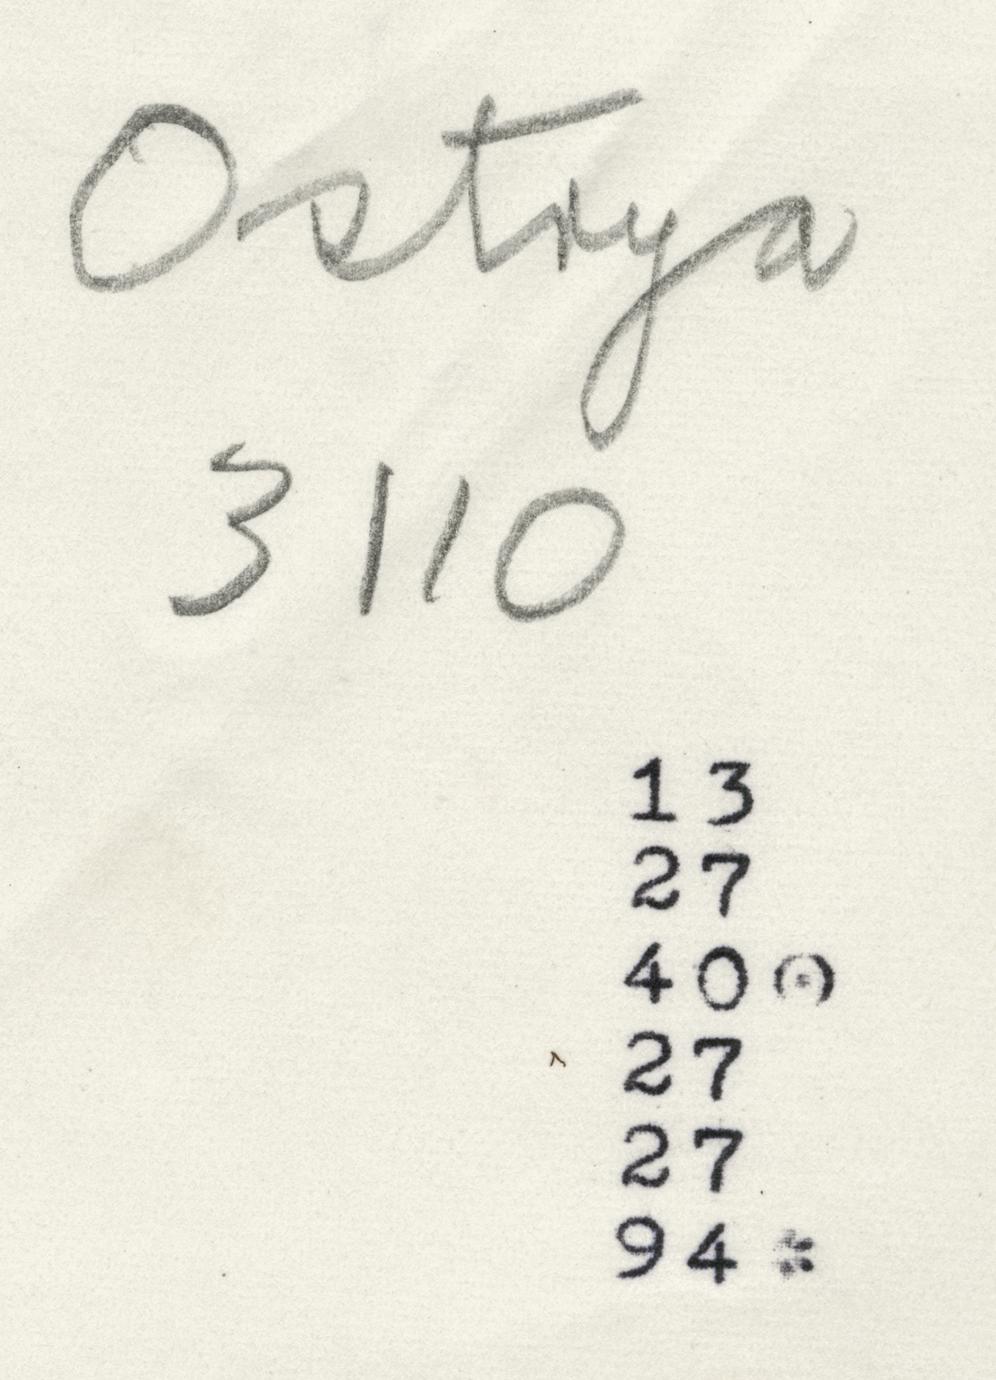 Ostrya
3110
13
27
40 ⊙
27
27
94 *